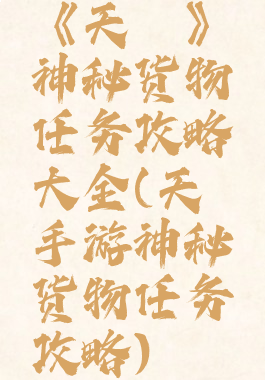 《天 》
神秘货物
任务攻略
大全(天
手游神秘
货物任务
攻略)